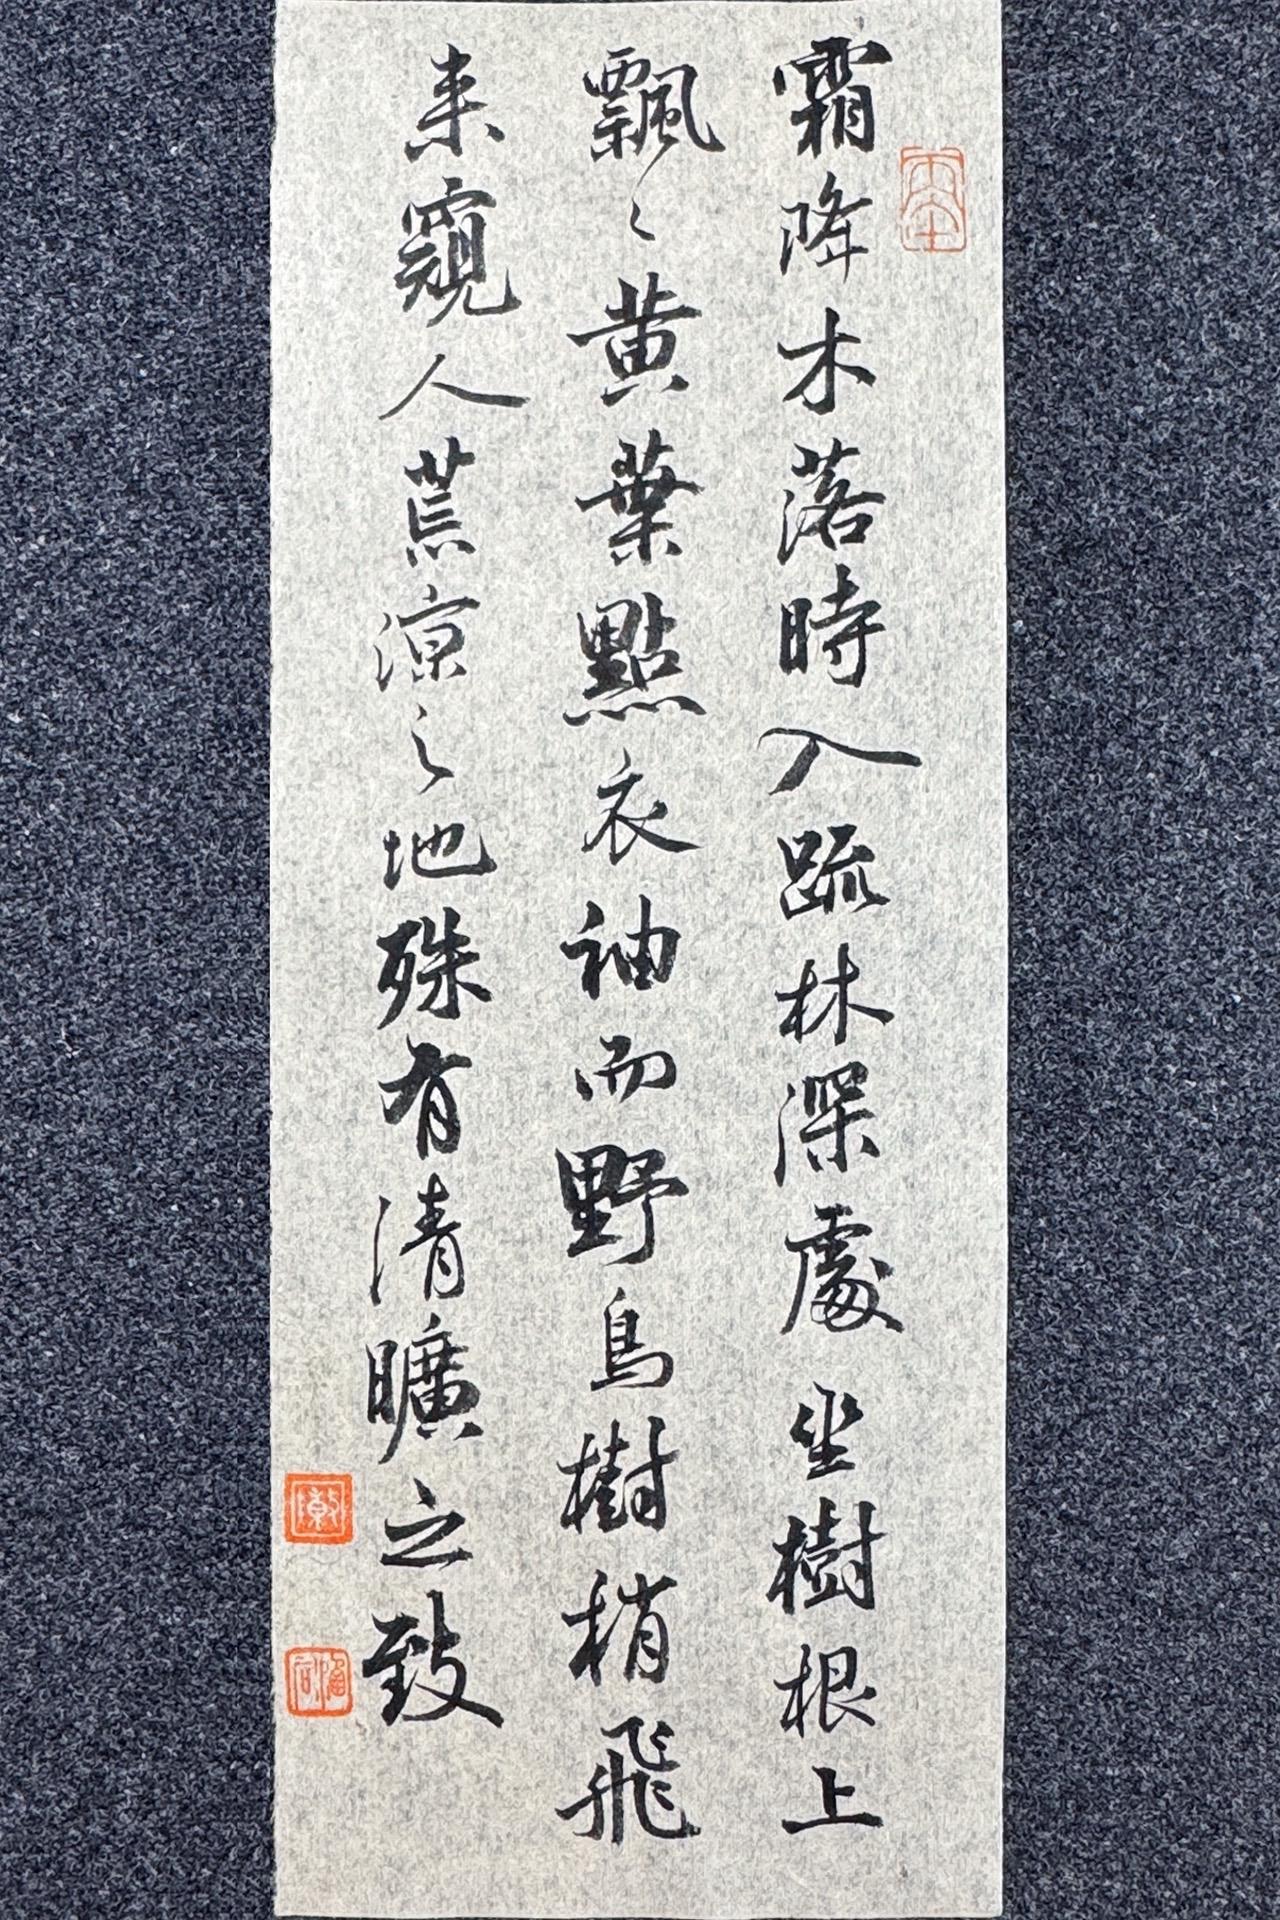 霜降木落時入疏林深處坐樹根上
飄々黄葉點衣袖而野鳥樹梢飛
来窺人荒涼之地殊有清曠之致